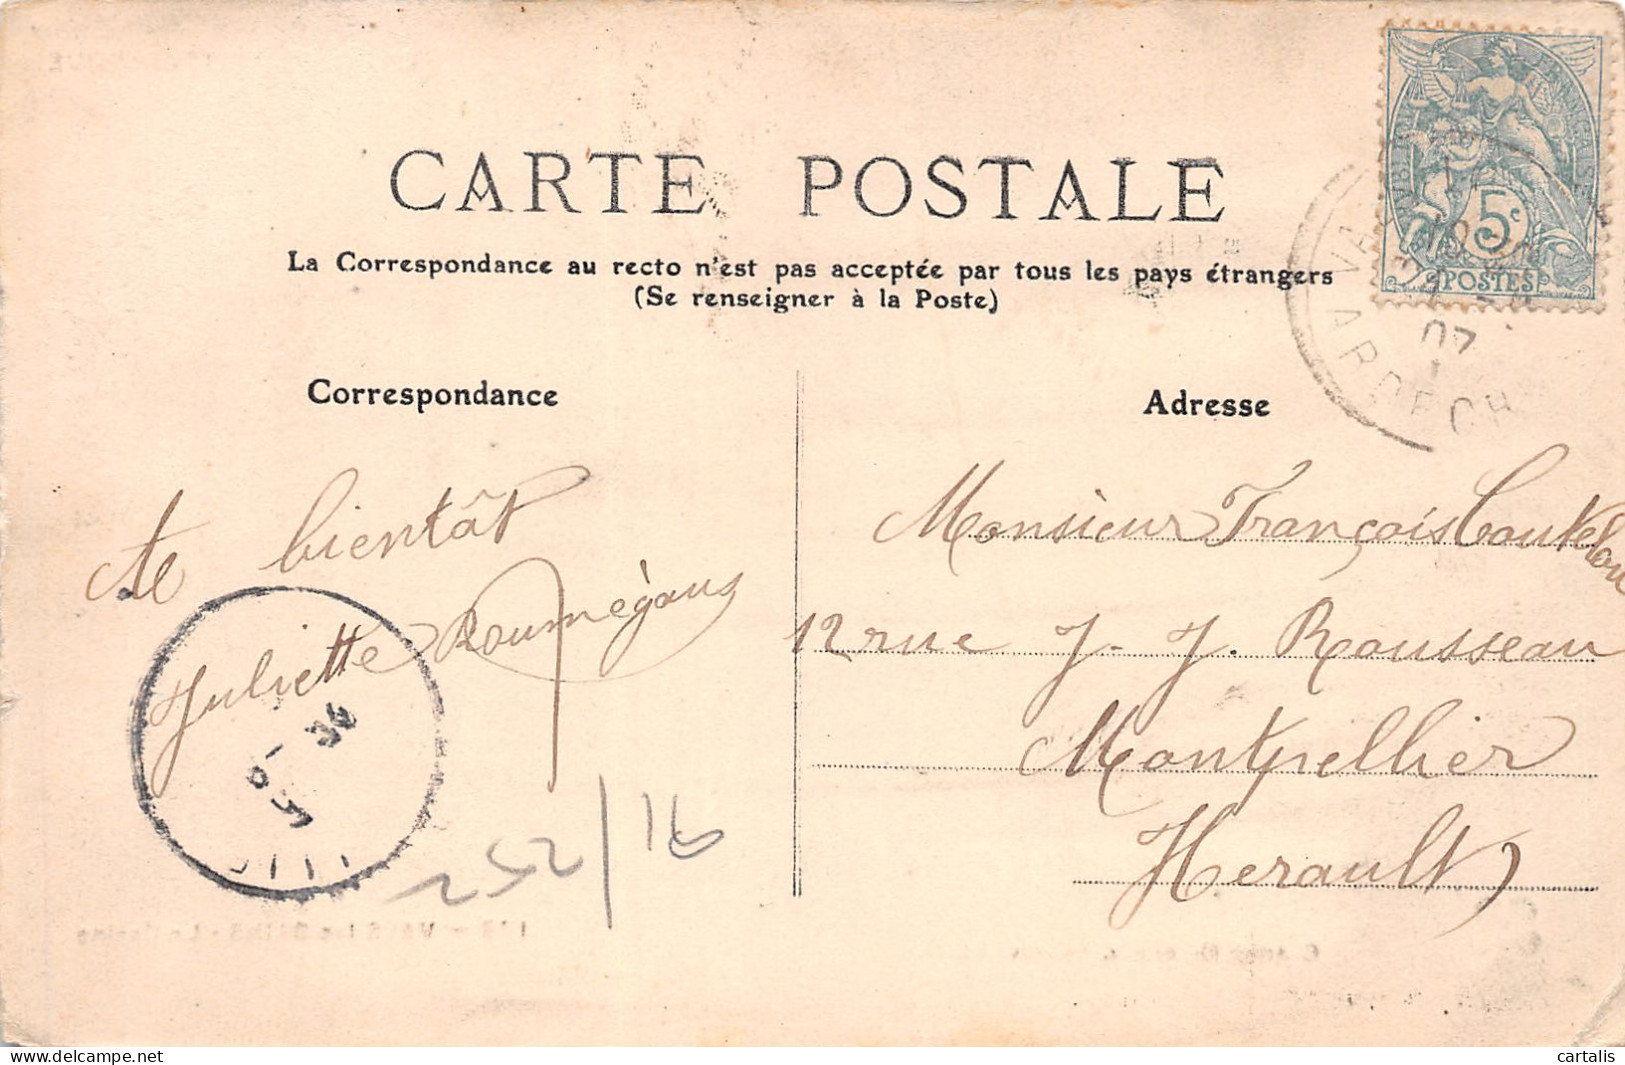 CARTE POSTALE
La Correspondance au recto n'est pas acceptée par tous les pays étrangers
(Se renseigner à la Poste)
Correspondance
Adresse
5c
POSTES
07
ARDECH
bientôt
Juliette
Monsieur François
12 rue J. J. Rousseau
Montpellier
Herault
252/16
delcampe.net
cartalis